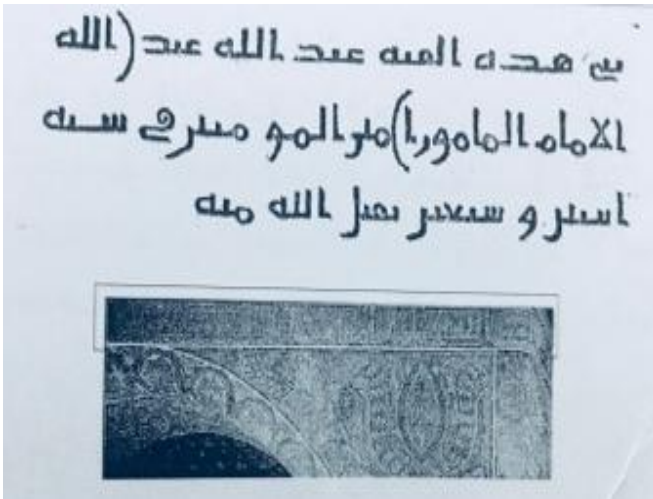 بنى هذه القبة عبد الله عبد (الله
الامام المامون ا)مير المومنين في سنة
اثنتين و سبعين تقبل الله منه